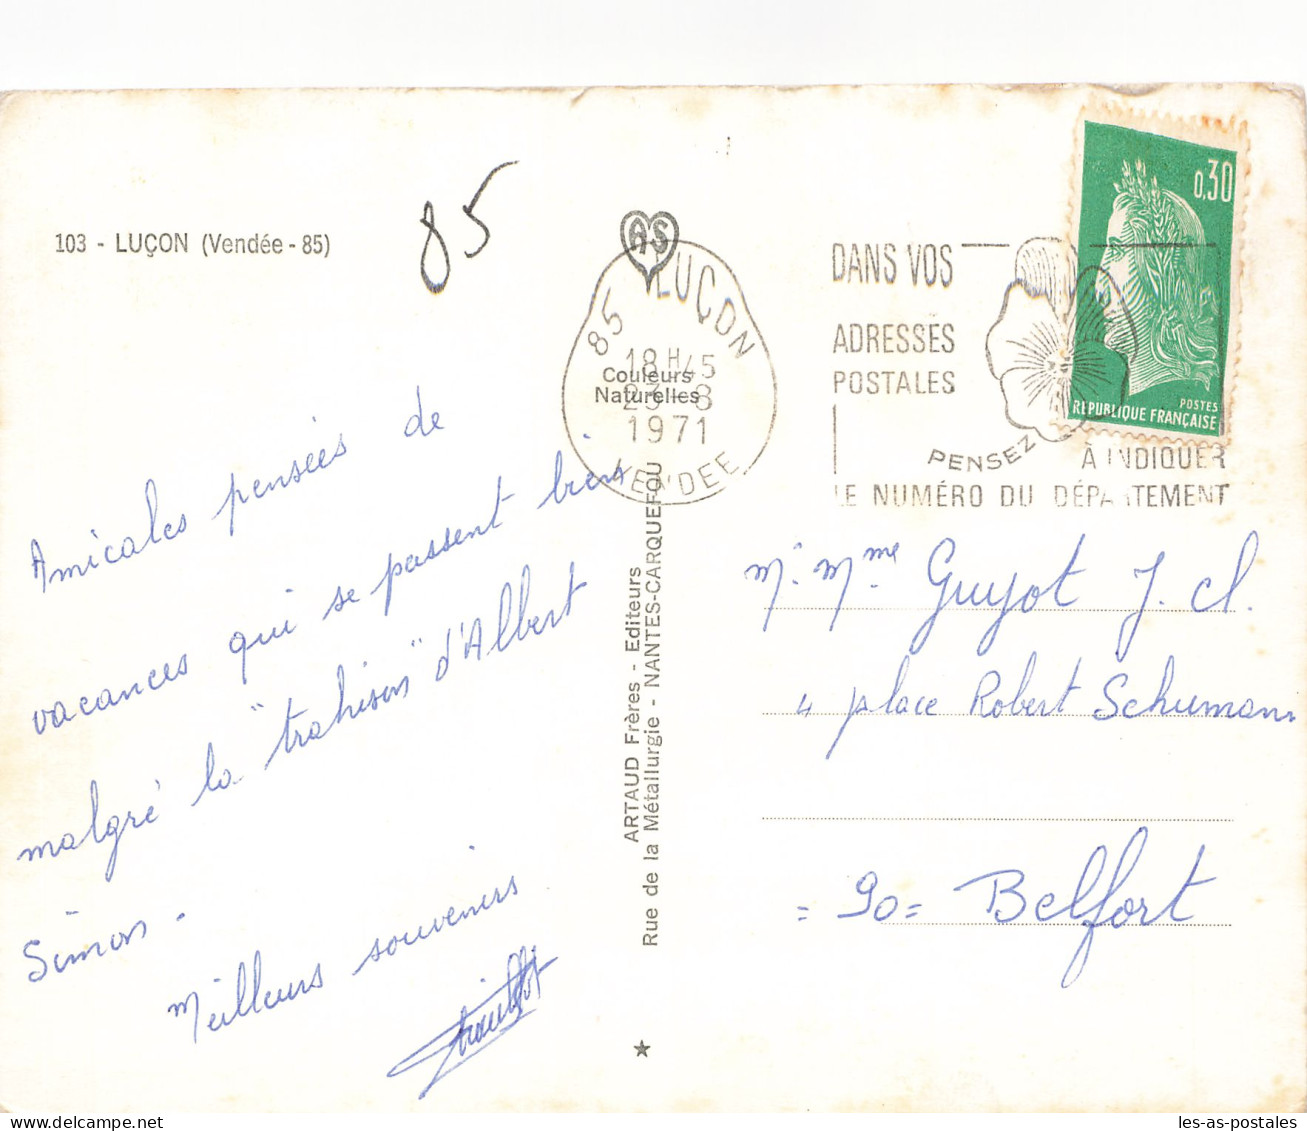 103 - LUÇON (Vendée - 85)
85
Amicales pensées de
vacances qui se passent bien
malgré la "trahison" d'Albert
Simon -
Meilleurs souvenirs
AS
85 LUÇON
18 H 45
23 - 8
1971
VENDEE
Couleurs
Naturelles
ARTAUD Frères - Editeurs
Rue de la Métallurgie - NANTES-CARQUEFOU
DANS VOS
ADRESSES
POSTALES
PENSEZ
À INDIQUER
LE NUMÉRO DU DÉPARTEMENT
0,30
POSTES
REPUBLIQUE FRANÇAISE
M. Mme Guyot J. Cl.
4 place Robert Schumann
= 90 = Belfort
les-as-postales